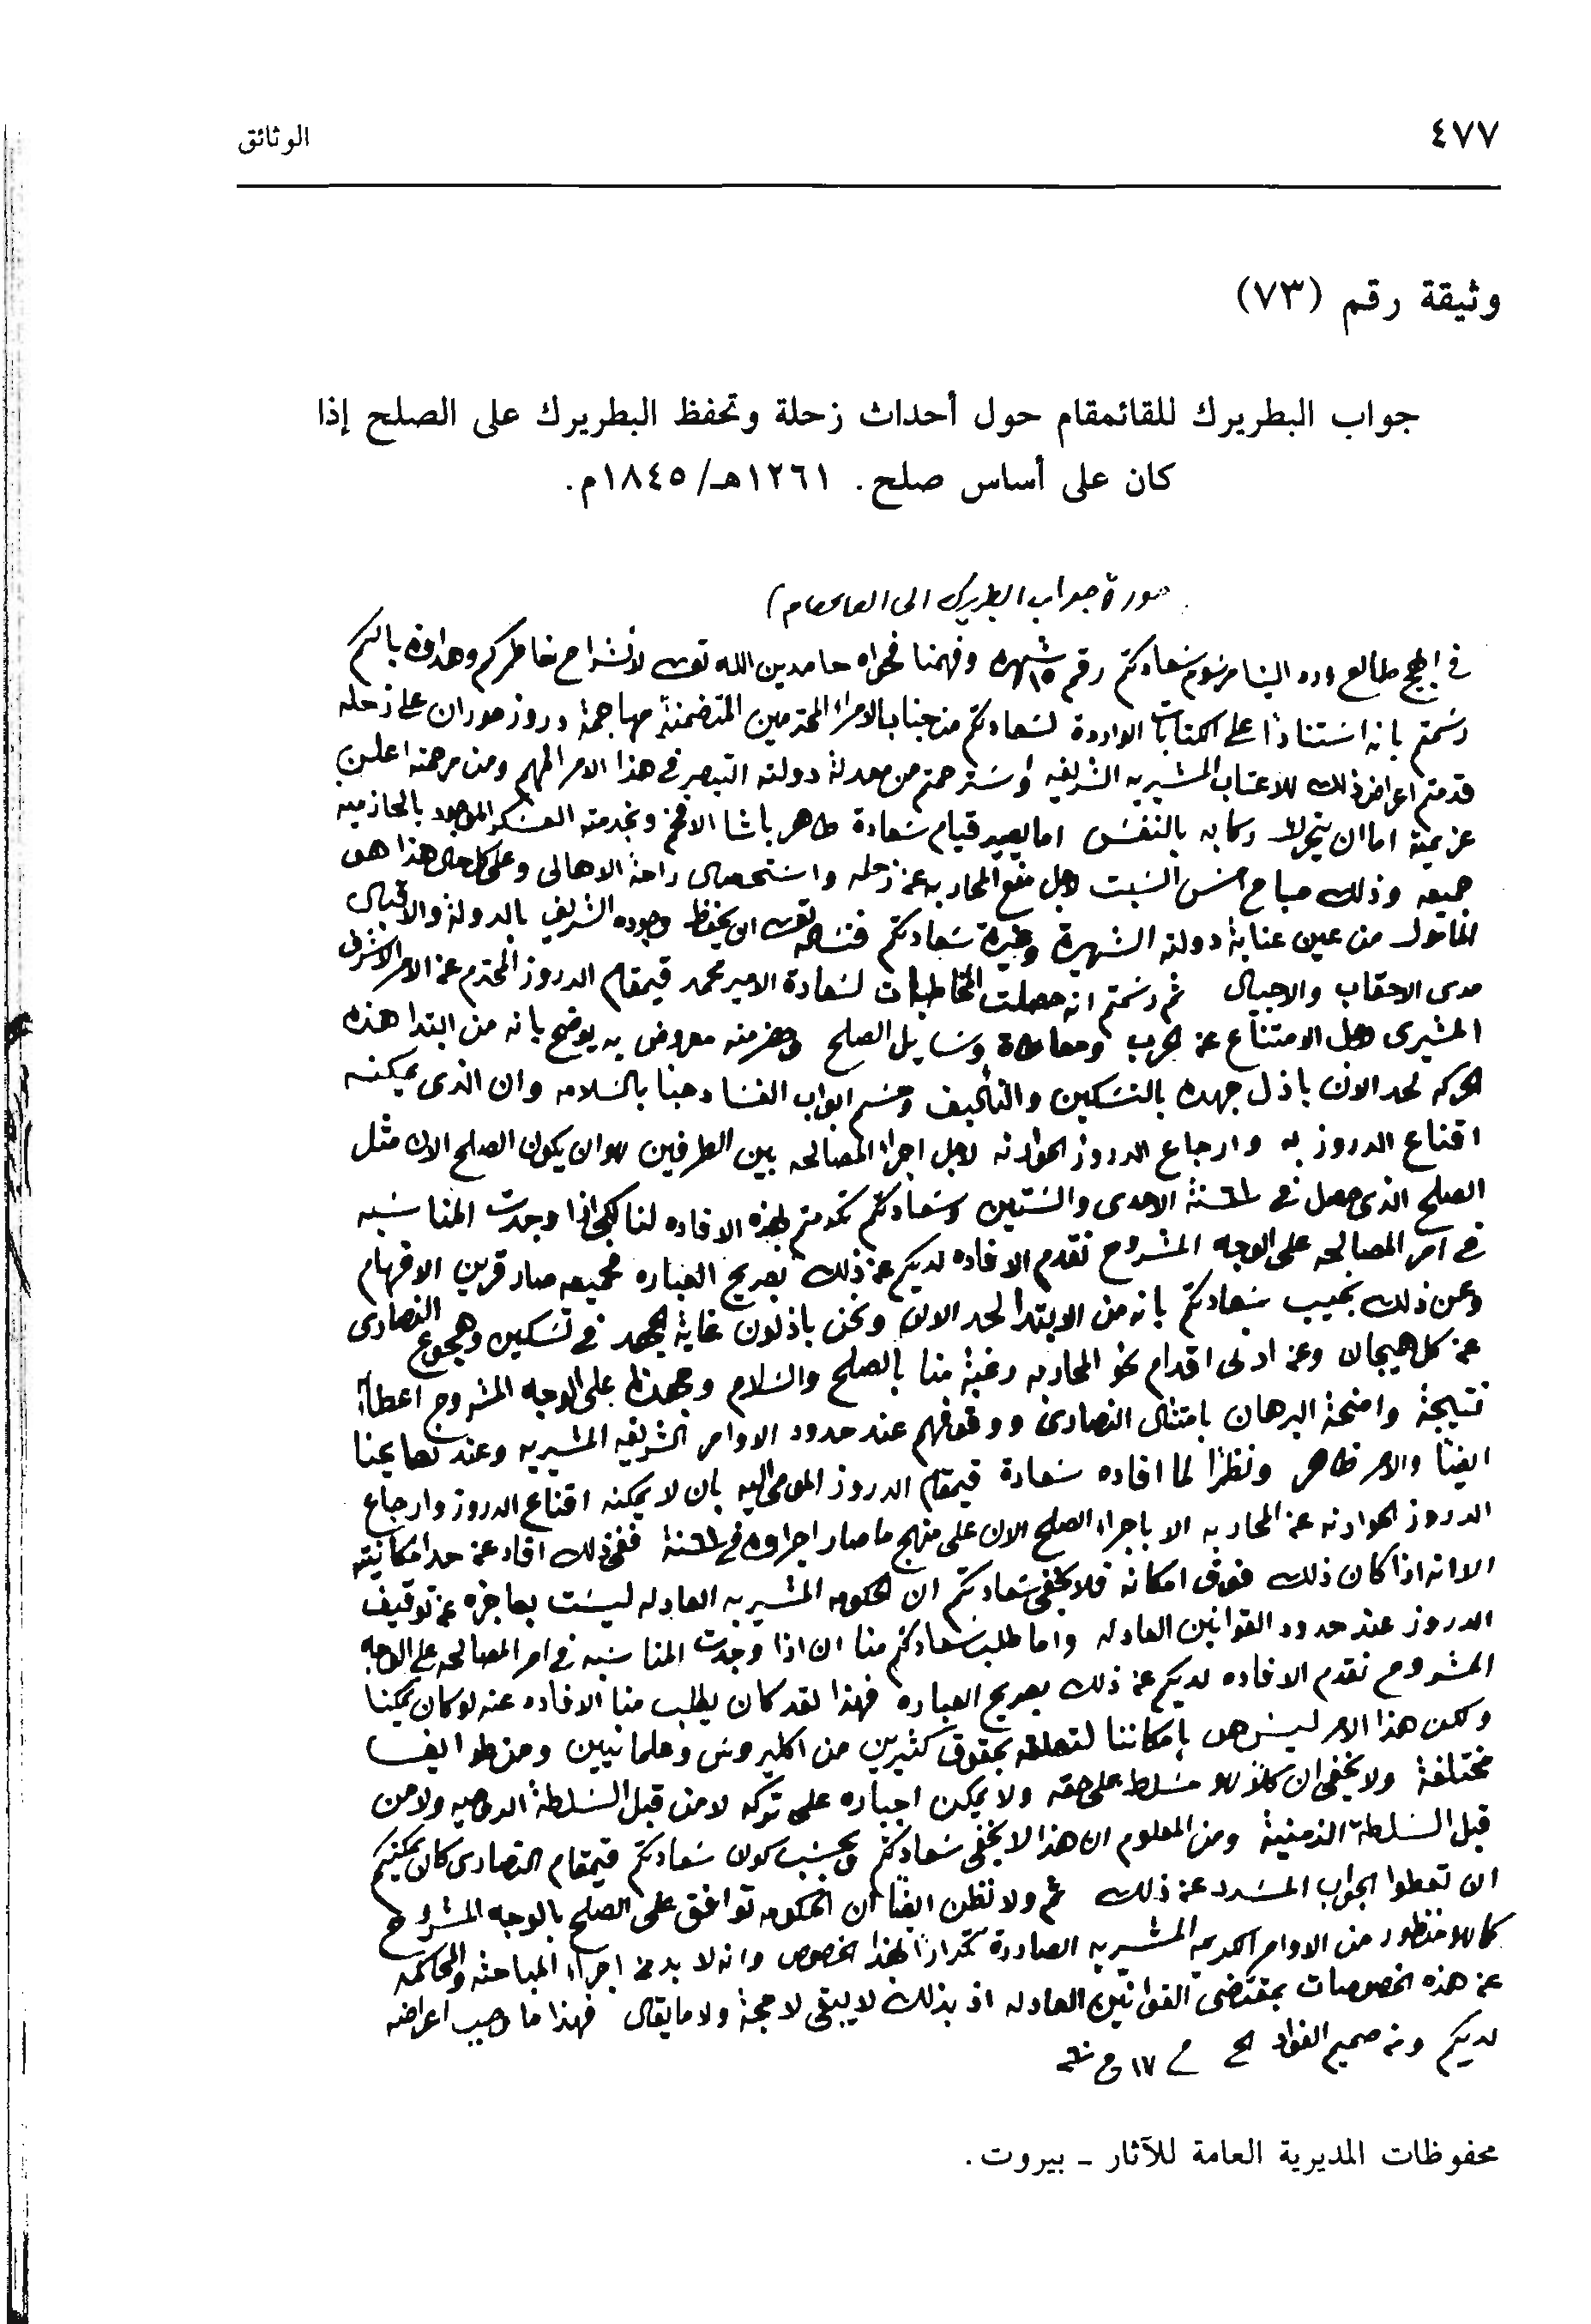 ٤٧٧
الوثائق
وثيقة رقم (٧٣)
جواب البطريرك للقائمقام حول أحداث زحلة وتحفظ البطريرك على الصلح إذا
كان على أساس صلح. ١٢٦١هـ/١٨٤٥م.
صورة جواب البطريرك الى القايمقام)
في طالع ورد الينا مرسوم سعادتكم رقم ١٥ شهره وفهمنا فحواه حامدين الله تعالى لانشراح خاطركم وهداوة بالكم
رسمتم بانه استناداً على الكتابات الواردة لسعادتكم من جناب الامراء المحترمين المتضمنة مهاجمة دروز حوران على زحله
قدمتم اعراض ذلك للاعتاب المشيريه الشريفه واسترحمتم من معدلة دولته التبصر في هذا الامر المهم ومن مرحمته اعلن
عزيمته اما ان يتحرك ركابه بالنفس اما يصير قيام سعادة طاهر باشا الافخم وبخدمته العسكر الموجود بالحازميه
جميعه وذلك صباح امس السبت لاجل منع المحاربه عن زحله واستحصال راحة الاهالي وعلى كل حال هذا هو
المأمول من عين عناية دولته الشهيرة وغيرة سعادتكم فنساله تعالى ان يحفظ وجوده الشريف بالدولة والاقبال
مدى الاحقاب والاجيال ثم رسمتم انه حصلت المخاطبات لسعادة الامير محمد قيمقام الدروز المحترم عن الامر الاشرفى
المشيرى لاجل الامتناع عن الحرب ومعاطاة وسايل الصلح وحضر منه معروض به يوضح بانه من ابتدا هذه
الحركه لحد الان باذل جهده بالتسكين والتأليف وحسم ابواب الفساد حبا بالسلامه وان الذى يمكنه
اقناع الدروز به وارجاع الدروز الحوارنه لاجل اجرا المصالحه بين الطرفين هو ان يكون الصلح الان مثل
الصلح الذى حصل في سنة ٦١ الاحدى والستين وسعادتكم تكرمتم بهذه الافاده لنا لكي اذا وجدت المناسبه
في امر المصالحه على الوجه المشروح نقدم الافاده لديكم عن ذلك بصريح العباره فجميعه صار قرين الافهام
وعن ذلك نجيب سعادتكم بانه من الابتدا لحد الان ونحن باذلون غاية الجهد في تسكين وهجوع النصارى
عن كل هيجان وعن ادنى اقدام نحو المحاربه رغبة منا بالصلح والسلام وجهدنا على الوجه المشروح اعطا
نتيجة واضحة البرهان بامتثال النصارى ووقوفهم عند حدود الاوامر الشريفه المشيريه وعند نصايحنا
ايضاً والامر ظاهر ونظراً لما افاده سعادة قيمقام الدروز المومى اليه بان لا يمكنه اقناع الدروز وارجاع
الدروز الحوارنه عن المحاربه الا باجراء الصلح الان على منهج ما صار اجراوه في سنة ٦١ ففي ذلك افاد عن حد امكانيته
الا انه اذا كان ذلك فوق امكانه فلا يخفى سعادتكم ان الحكومه المشيريه العادله ليست بعاجزه عن توقيف
الدروز عند حدود القوانين العادله واما طلب سعادتكم منا ان اذا وجدت المناسبه في امر المصالحه على الوجه
المشروح نقدم الافاده لديكم عن ذلك بصريح العباره فهذا لقد كان يطلب منا الافاده عنه لو كان يمكنا
ولكن هذا الامر ليس هو بامكاننا لتعلقه بحقوق كثيرين من اكليروس وعلمانيين ومن طوايف
مختلفة ولا يخفى ان كلاً هو مسلط على حقه ولا يمكن اجباره على تركه لا من قبل السلطة الروحيه ولا من
قبل السلطة الزمنية ومن المعلوم ان هذا لا يخفى سعادتكم وبحسب كون سعادتكم قيمقام النصارى كان يمكنكم
ان تعطوا الجواب المسدد عن ذلك ثم ولا نظن ايضاً ان الحكومه توافق على الصلح بالوجه المشروح
كما هو منظور من الاوامر الكريمه المشيريه الصادرة تكراراً بهذا الخصوص وانه لا بد من اجراء المباحثه والمحاكمه
عن هذه الخصوصات بمقتضى القوانين العادله اذ بذلك لا يبقى لا حجة ولا ما يقال فهذا ما وجب اعراضه
لديكم ومن صميم الفواد الخ في ١٧
محفوظات المديرية العامة للآثار - بيروت.